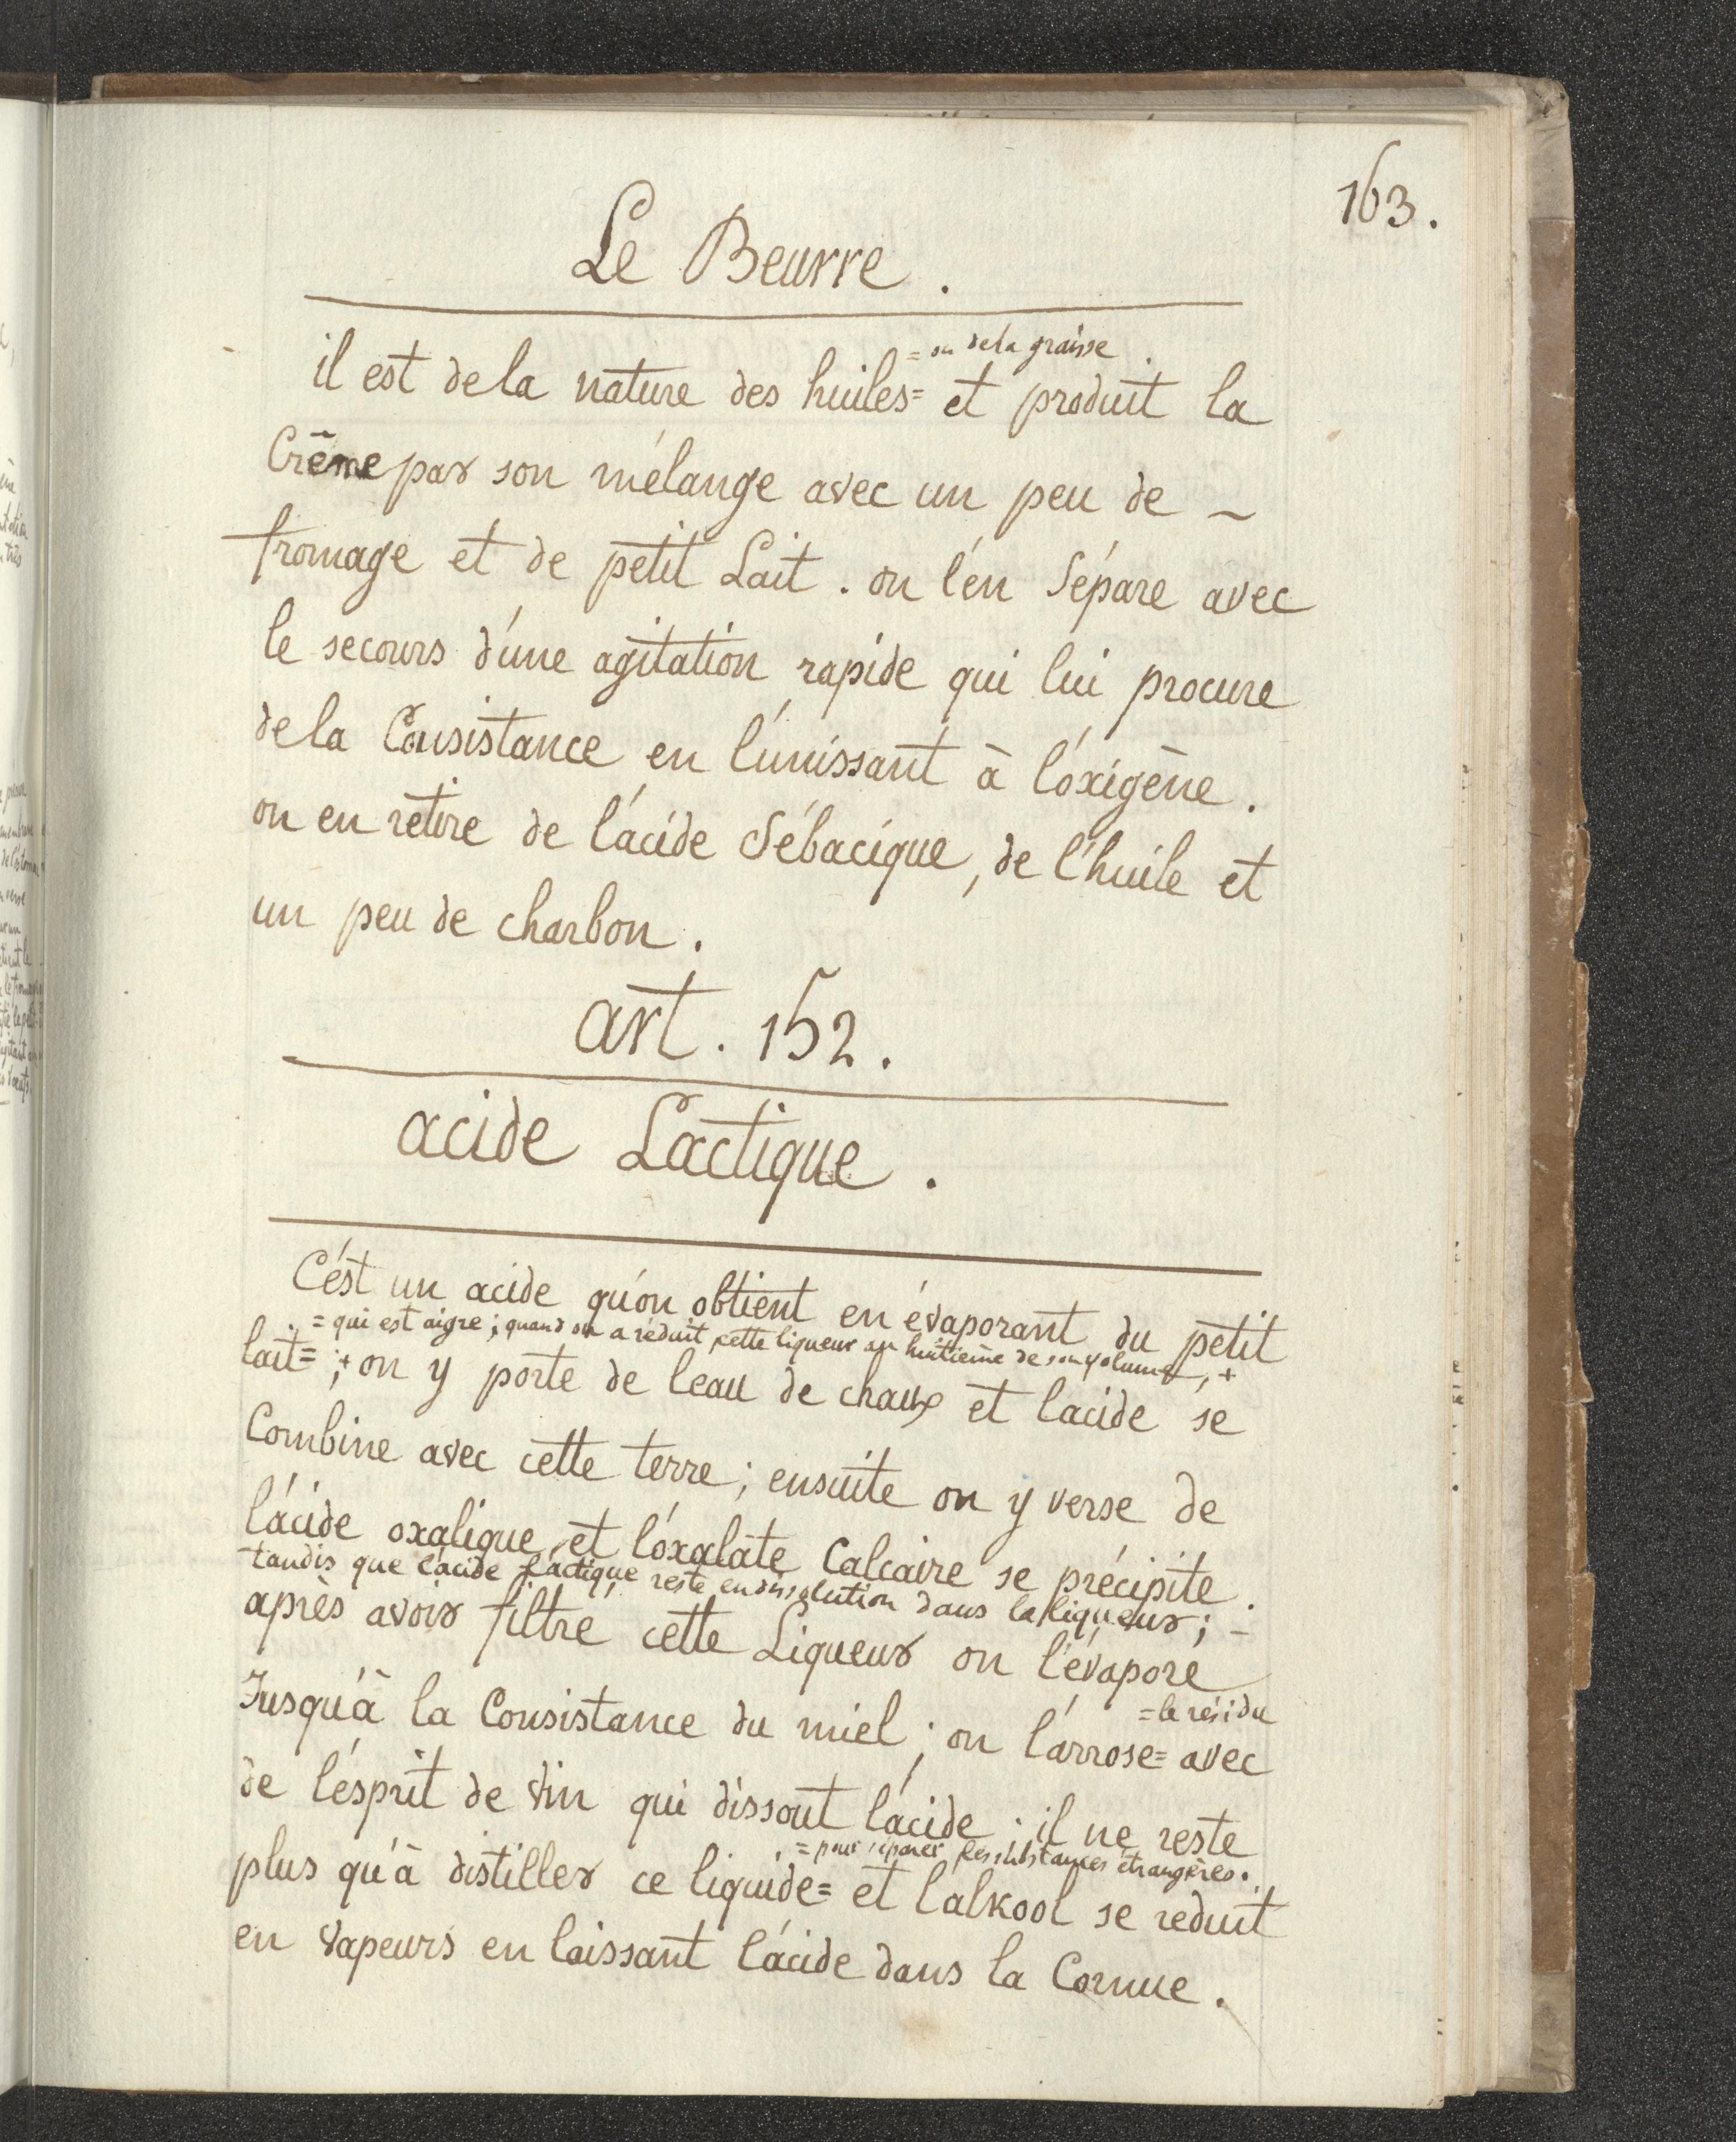 163.
Le Beurre.
= ou dela graisse.
il est dela nature des huiles= et produit la
Crême par son mélange avec un peu de ~
fromage et de petit Lait. on l'en Sépare avec
le secours d'une agitation rapide qui lui procure
dela Consistance en l'unissant à l'oxigène.
on en retire de l'acide Sébacique, de l'huile et
un peu de charbon.
art. 152.
acide Lactique.
C'est un acide qu'on obtient en évaporant du petit
= qui est aigre; quand on a réduit cette liqueur au huitième de son volume, +
lait= ;+ on y porte de leau de chaux et lacide se
Combine avec cette terre; ensuite on y verse de
l'acide oxalique, et l'oxalate Calcaire se précipite.
tandis que l'acide Lactique reste en dissolution dans la liqueur; -
après avoir filtré cette Liqueur on l'évapore
= le résidu
Jusqu'à la Consistance du miel; on l'arrose= avec
de l'esprit de vin qui dissout l'acide; il ne reste
= pour séparer les substances étrangères.
plus qu'à distiller ce liquide= et lalkool se reduit
en vapeurs en laissant l'acide dans la Cornue.